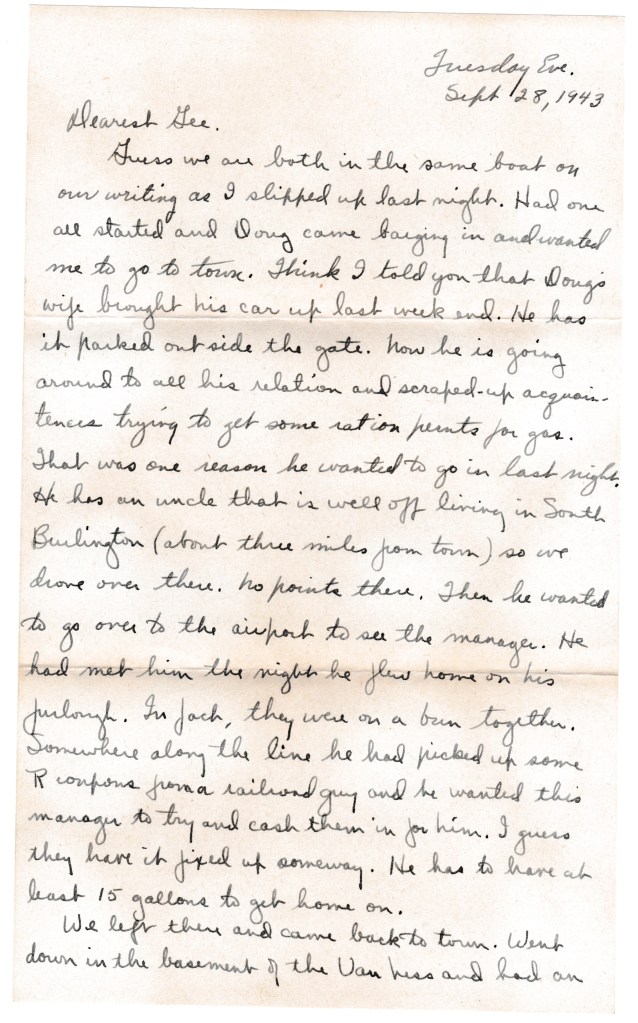 Tuesday Eve.
Sept 28, 1943
Dearest Gee.
Guess we are both in the same boat on
our writing as I slipped up last night. Had one
all started and Doug came barging in and wanted
me to go to town. Think I told you that Doug's
wife brought his car up last week end. He has
it parked outside the gate. Now he is going
around to all his relation and scraped-up acquain-
tences trying to get some ration points for gas.
That was one reason he wanted to go in last night.
He has an uncle that is well off living in South
Burlington (about three miles from town) so we
drove over there. No points there. Then he wanted
to go over to the airport to see the manager. He
had met him the night he flew home on his
furlough. In fact, they were on a bun together.
Somewhere along the line he had picked up some
R coupons from a railroad guy and he wanted this
manager to try and cash them in for him. I guess
they have it fixed up someway. He has to have at
least 15 gallons to get home on.
We left there and came back to town. Went
down in the basement of the Van Ness and had an